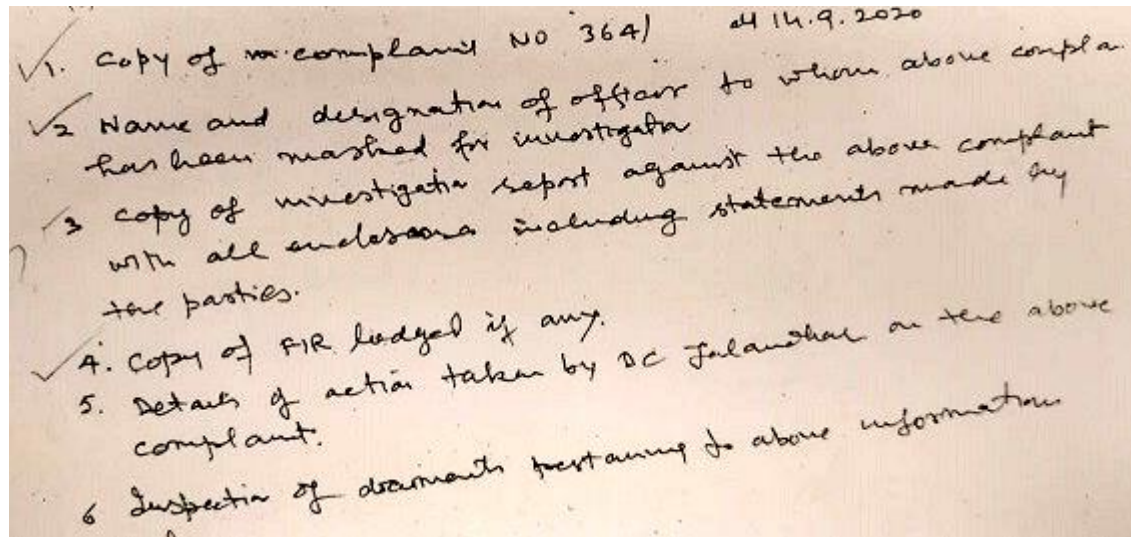 1. Copy of complaint NO 3641 dt 14.9.2020
2 Name and designation of officer to whom above compla
has been marked for investigation
3 copy of investigation report against the above complaint
with all enclosures including statements made by
the parties.
4. Copy of FIR lodged if any.
5. Details of action taken by DC Jalandhar on the above
complaint.
6 Inspection of documents pertaining to above information